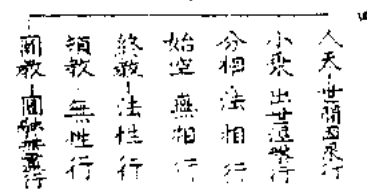 人天―世間因果行
小乘 出世行
分相 法相行
始空 無相行
終教―法性行
頓教 無性行
圓教―圓融無盡行